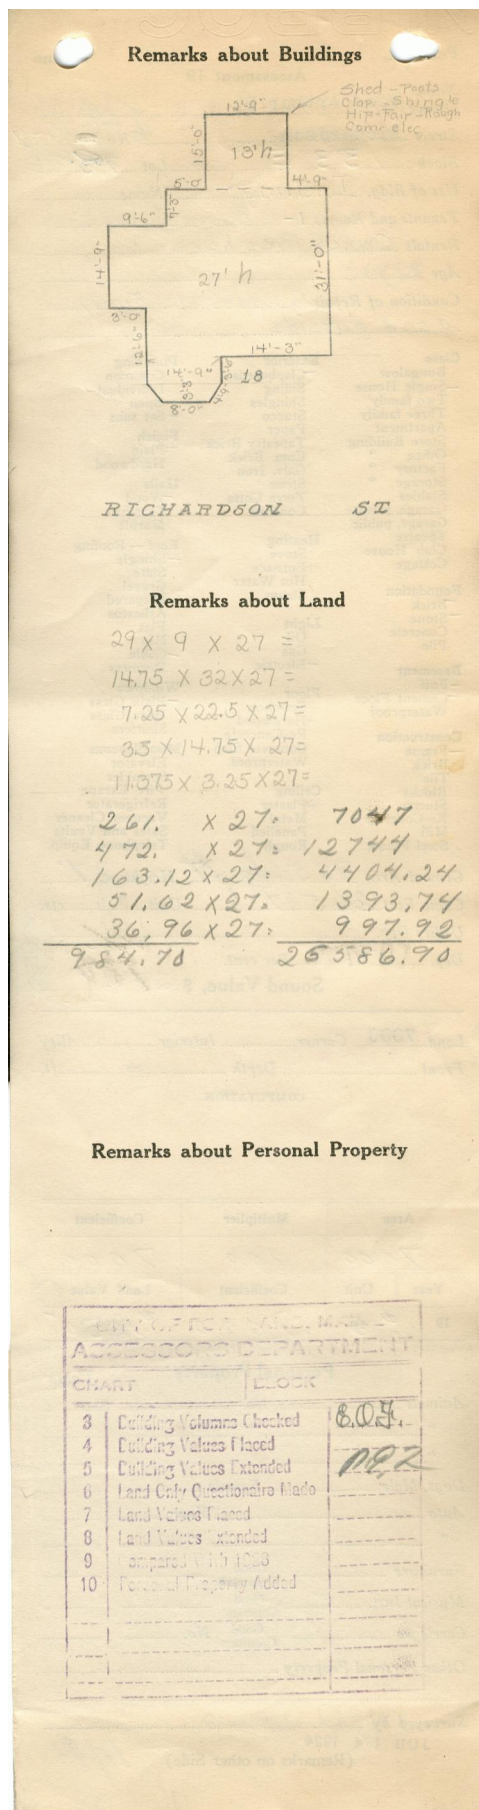 Remarks about Buildings
Shed - Posts
Clap. - Shingle
Hip - Fair - Rough
Com elec
12'-9"
15'-0"
13' h
5'-0"
4'-9"
7'-3"
9'-6"
14'-9"
27' h
31'-0"
3'-9
12'-6"
14'-9"
14'-3"
18
8'-0"
RICHARDSON ST
Remarks about Land
29 X 9 X 27 =
14.75 X 32 X 27 =
7.25 X 22.5 X 27 =
3.5 X 14.75 X 27 =
11.375 X 3.25 X 27 =
261. X 27 = 7047
472. X 27 = 12744
163.12 X 27 = 4404.24
51.62 X 27 = 1393.74
36,96 X 27 = 997.92
984.70 26586.90
Remarks about Personal Property
ASSESSORS DEPARTMENT
CHART BLOCK
3 Building Volumes Checked
4 Building Values Placed
5 Building Values Extended
6 Land Only Questionaire Made
7 Land Values Placed
8 Land Values Extended
9 Compared With
10 Personal Property Added